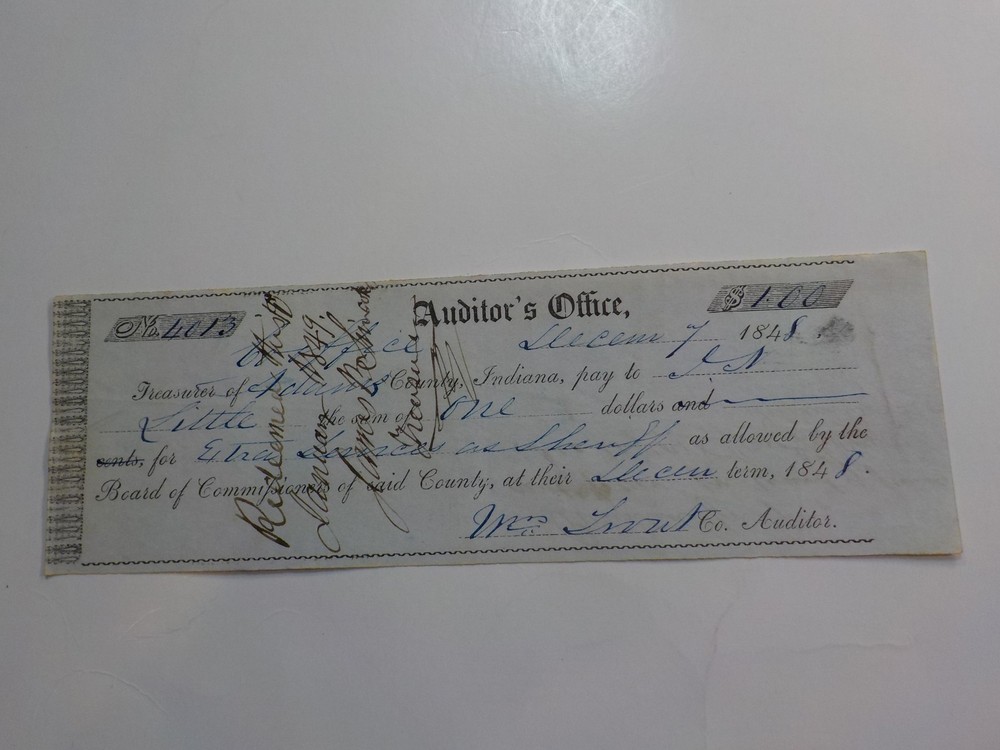 No. 4013
Auditor's Office,
$ 1.00
Office Decem 7 1848.
Treasurer of Adams County, Indiana, pay to J N
Little the sum of One dollars and
cents, for Extra Services as Sheriff as allowed by the
Board of Commissioners of said County, at their Decem term, 1848.
Wm Trout Co. Auditor.
Redeemed this
January 1849,
James